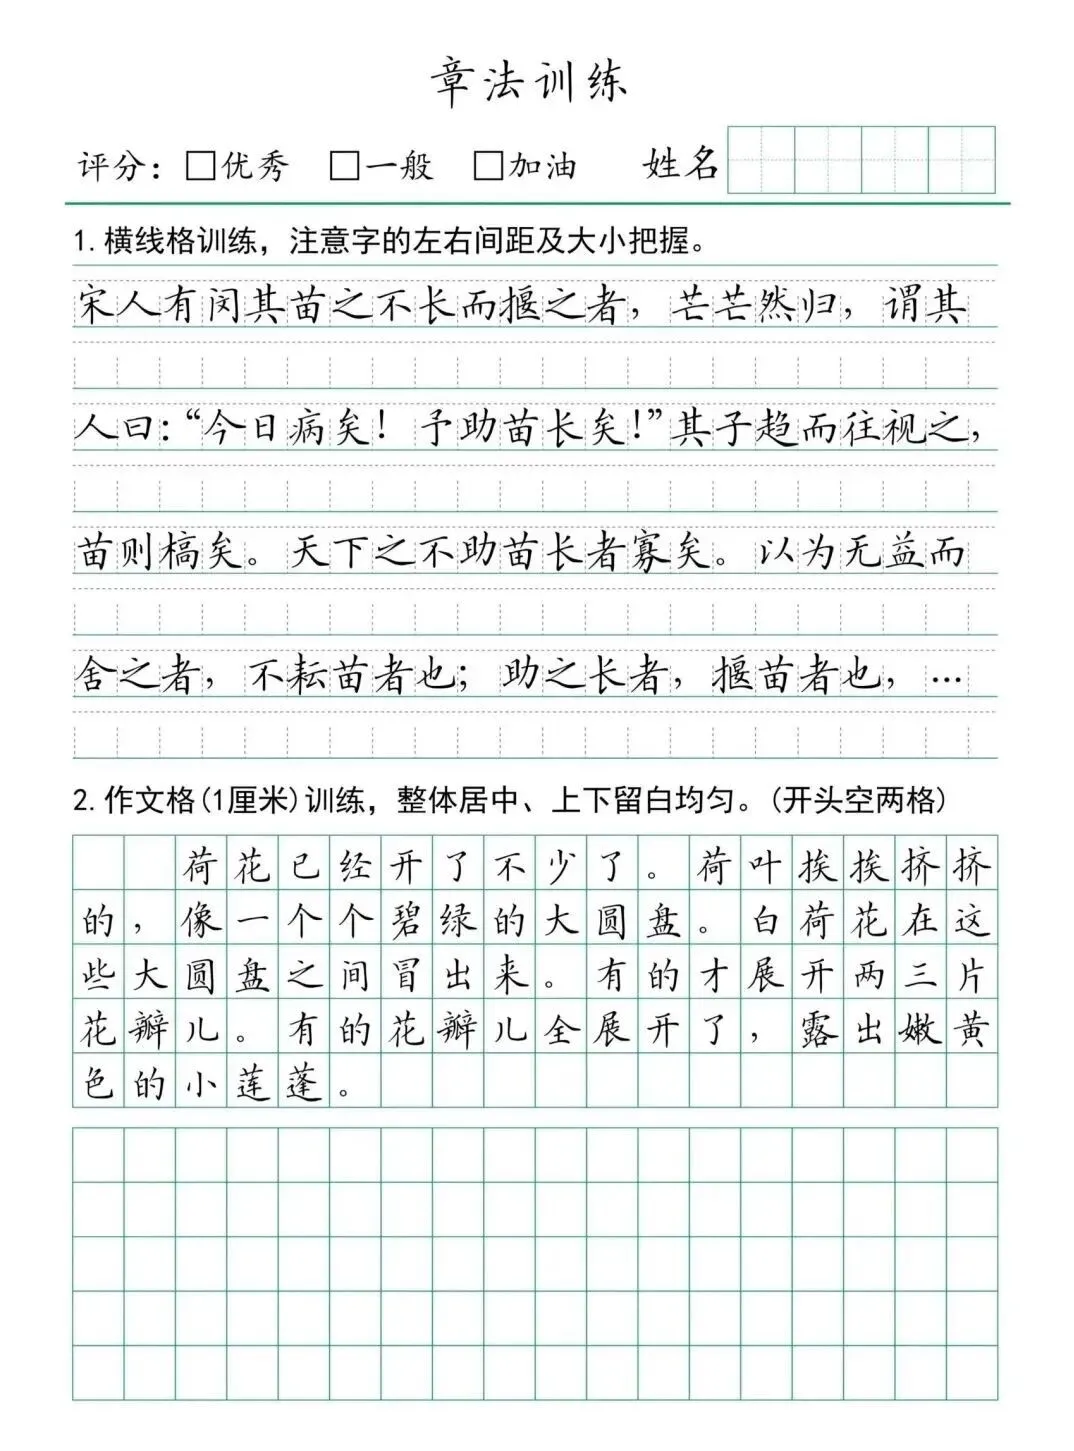 章法训练
评分：□优秀 □一般 □加油 姓名
1.横线格训练，注意字的左右间距及大小把握。
宋人有闵其苗之不长而揠之者，芒芒然归，谓其
人曰：“今日病矣！予助苗长矣！”其子趋而往视之，
苗则槁矣。天下之不助苗长者寡矣。以为无益而
舍之者，不耘苗者也；助之长者，揠苗者也，…
2.作文格(1厘米)训练，整体居中、上下留白均匀。(开头空两格)
荷花已经开了不少了。荷叶挨挨挤挤
的，像一个个碧绿的大圆盘。白荷花在这
些大圆盘之间冒出来。有的才展开两三片
花瓣儿。有的花瓣儿全展开了，露出嫩黄
色的小莲蓬。